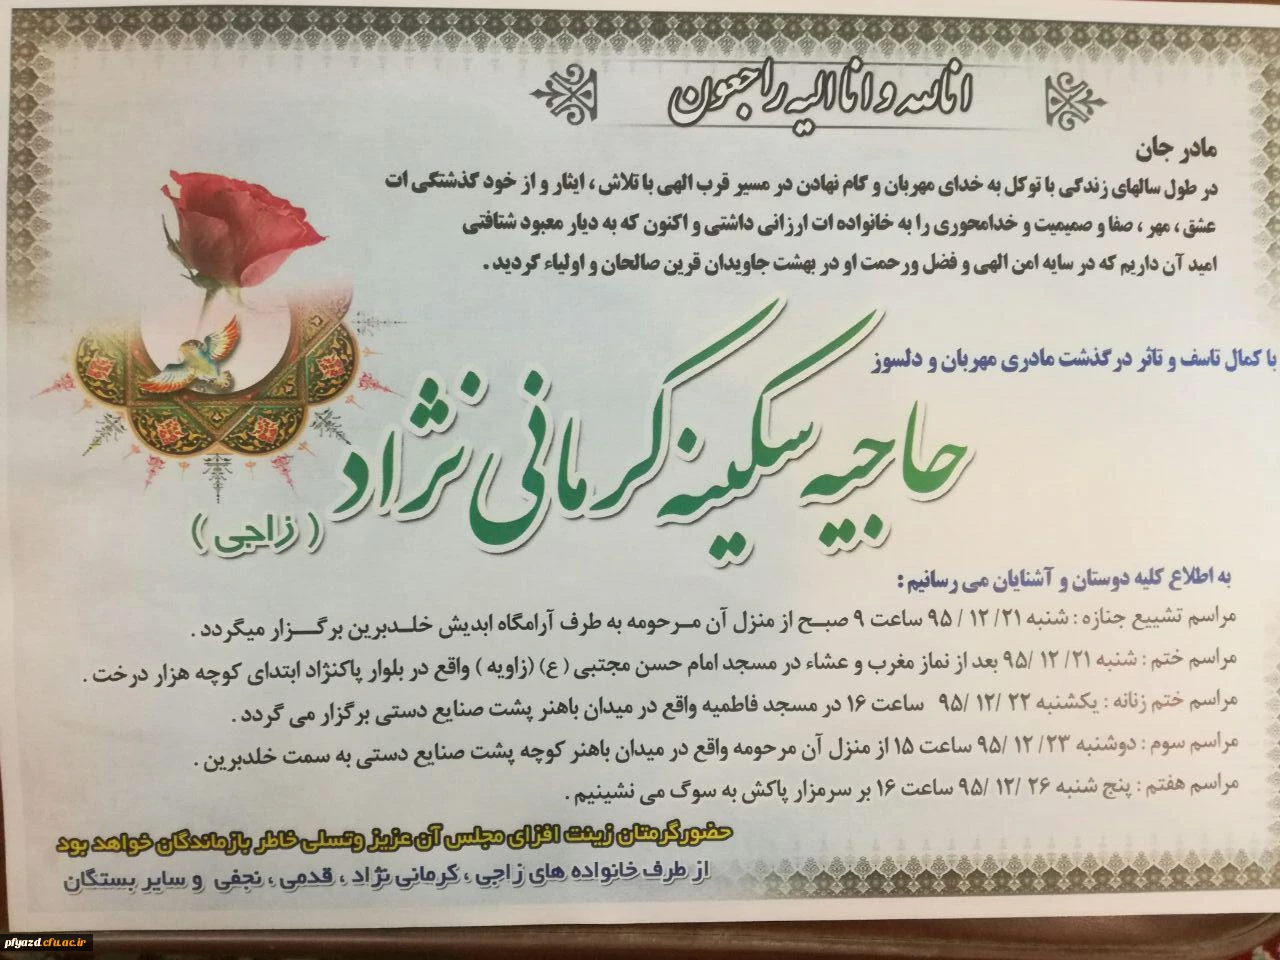 انالله و انا اليه راجعون
مادر جان
در طول سالهای زندگی با توکل به خدای مهربان و گام نهادن در مسیر قرب الهی با تلاش ، ایثار و از خود گذشتگی ات
عشق ، مهر ، صفا و صمیمیت و خدامحوری را به خانواده ات ارزانی داشتی و اکنون که به دیار معبود شتافتی
امید آن داریم که در سایه امن الهی و فضل ورحمت او در بهشت جاویدان قرین صالحان و اولیاء گردید .
با کمال تاسف و تاثر درگذشت مادری مهربان و دلسوز
حاجیه سکینه کرمانی نژاد
( زاجی )
به اطلاع کلیه دوستان و آشنایان می رسانیم :
مراسم تشییع جنازه : شنبه ۹۵/۱۲/۲۱ ساعت ۹ صبح از منزل آن مرحومه به طرف آرامگاه ابدیش خلدبرین برگزار میگردد .
مراسم ختم : شنبه ۹۵/۱۲/۲۱ بعد از نماز مغرب و عشاء در مسجد امام حسن مجتبی ( ع ) (زاویه ) واقع در بلوار پاکنژاد ابتدای کوچه هزار درخت .
مراسم ختم زنانه : یکشنبه ۹۵/۱۲/۲۲ ساعت ۱۶ در مسجد فاطمیه واقع در میدان باهنر پشت صنایع دستی برگزار می گردد .
مراسم سوم : دوشنبه ۹۵/۱۲/۲۳ ساعت ۱۵ از منزل آن مرحومه واقع در میدان باهنر کوچه پشت صنایع دستی به سمت خلدبرین .
مراسم هفتم : پنج شنبه ۹۵/۱۲/۲۶ ساعت ۱۶ بر سرمزار پاکش به سوگ می نشینیم .
حضورگرمتان زینت افزای مجلس آن عزیز وتسلی خاطر بازماندگان خواهد بود
از طرف خانواده های زاجی ، کرمانی نژاد ، قدمی ، نجفی و سایر بستگان
pfyazd.cfu.ac.ir